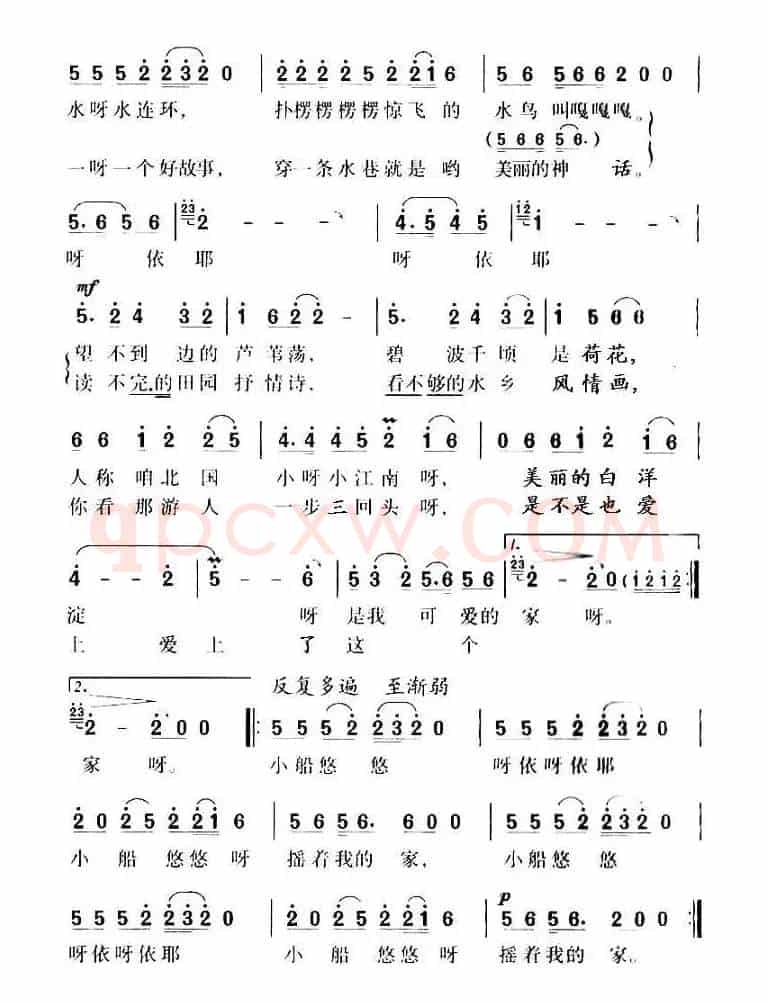 5 5 5 2 2 3 2 0 | 2 2 2 2 2 5 2 2 1 6 | 5 6 5 6 6 6 0 0
水呀水连环, 扑楞楞楞楞惊飞的 水鸟叫嘎嘎嘎。
(5 6 6 5 6.)
一呀一个好故事, 穿一条水巷就是哟 美丽的神话。
5. 6 5 5 6 | 23 2 - - | 4. 5 4 5 | 12 1 - -
呀依耶 呀依耶
mf
5. 2 4 3 2 | 1 6 2 2 - | 5. 2 4 3 2 | 1 5 6 6
望不到边的芦苇荡, 碧波千顷是荷花,
读不完的田园抒情诗, 看不够的水乡风情画,
6 6 1 2 2 5 | 4. 4 4 5 2 1 6 | 0 6 6 1 2 1 6
人称咱北国 小呀小江南呀, 美丽的白洋
你看那游人 一步三回头呀, 是不是也爱
qpcxw.COM
1.
4 - - 2 | 5 - - 6 | 5 3 2 5. 6 5 6 | 23 2 - 2 0 (1 2 1 2 :|
淀 呀是我可爱的家呀。
上 爱上了这个
2. 反复多遍 至渐弱
23 2 - 2 0 0 |: 5 5 5 5 2 2 3 2 0 | 5 5 5 2 2 3 2 0
家呀。 小船悠悠 呀依呀依耶
2 0 2 5 2 2 1 6 | 5 6 5 6. 6 0 0 | 5 5 5 5 2 2 3 2 0
小船悠悠呀 摇着我的家, 小船悠悠
p
5 5 5 2 2 3 2 0 | 2 0 2 5 2 2 1 6 | 5 6 5 6. 2 0 0 :|
呀依呀依耶 小船悠悠呀 摇着我的家。